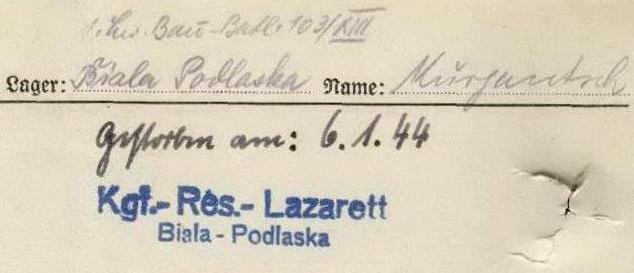 1. Kw. Bau-Batl. 103/XIII
Lager: Biala Podlaska Name: Murgantsch
Gestorben am: 6.1.44
Kgf.- Res.- Lazarett
Biala - Podlaska